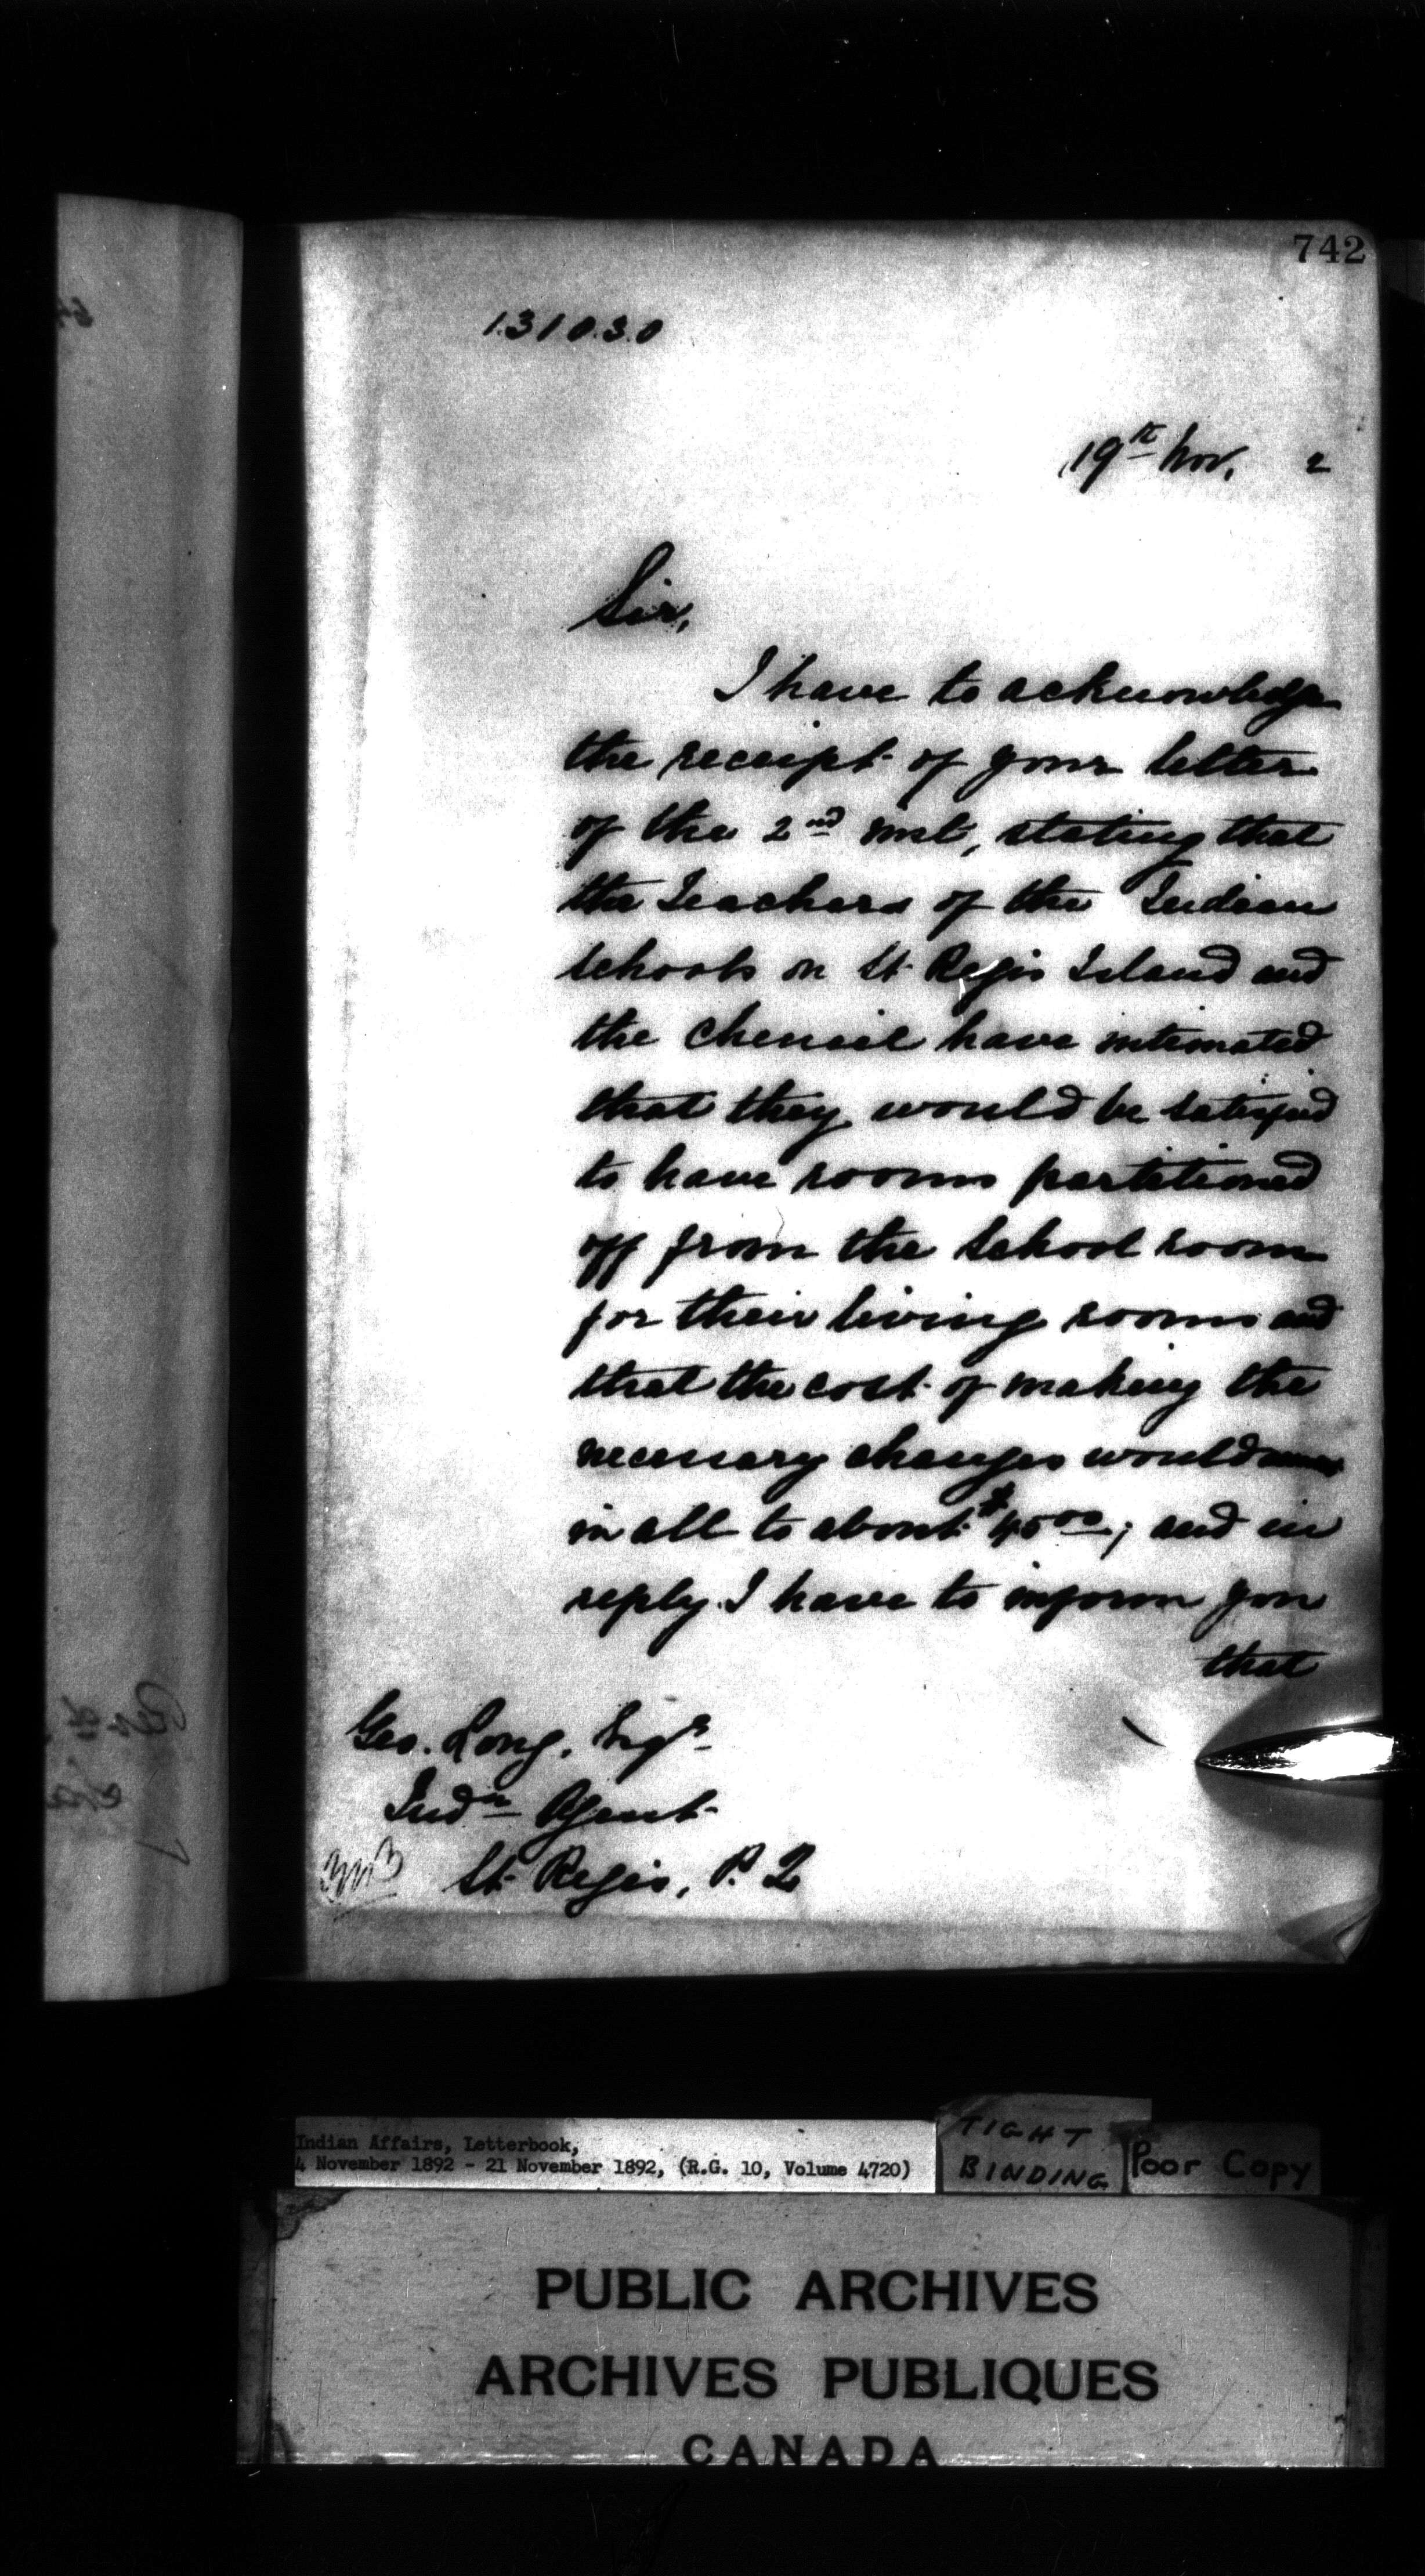 742
131030
19th Nov. 2
Sir,
I have to acknowledge
the receipt of your letter
of the 2nd inst, stating that
the Teachers of the Indian
schools on St. Regis Island and
the Chenail have intimated
that they would be satisfied
to have rooms partitioned
off from the school room
for their living rooms and
that the cost of making the
necessary changes would
in all to about $45 00; and in
reply I have to inform you
that
Geo. Long, Esqr
Indn Agent
St. Regis, P. Q
Indian Affairs, Letterbook,
4 November 1892 - 21 November 1892, (R.G. 10, Volume 4720)
TIGHT
BINDING
Poor Copy
PUBLIC ARCHIVES
ARCHIVES PUBLIQUES
CANADA